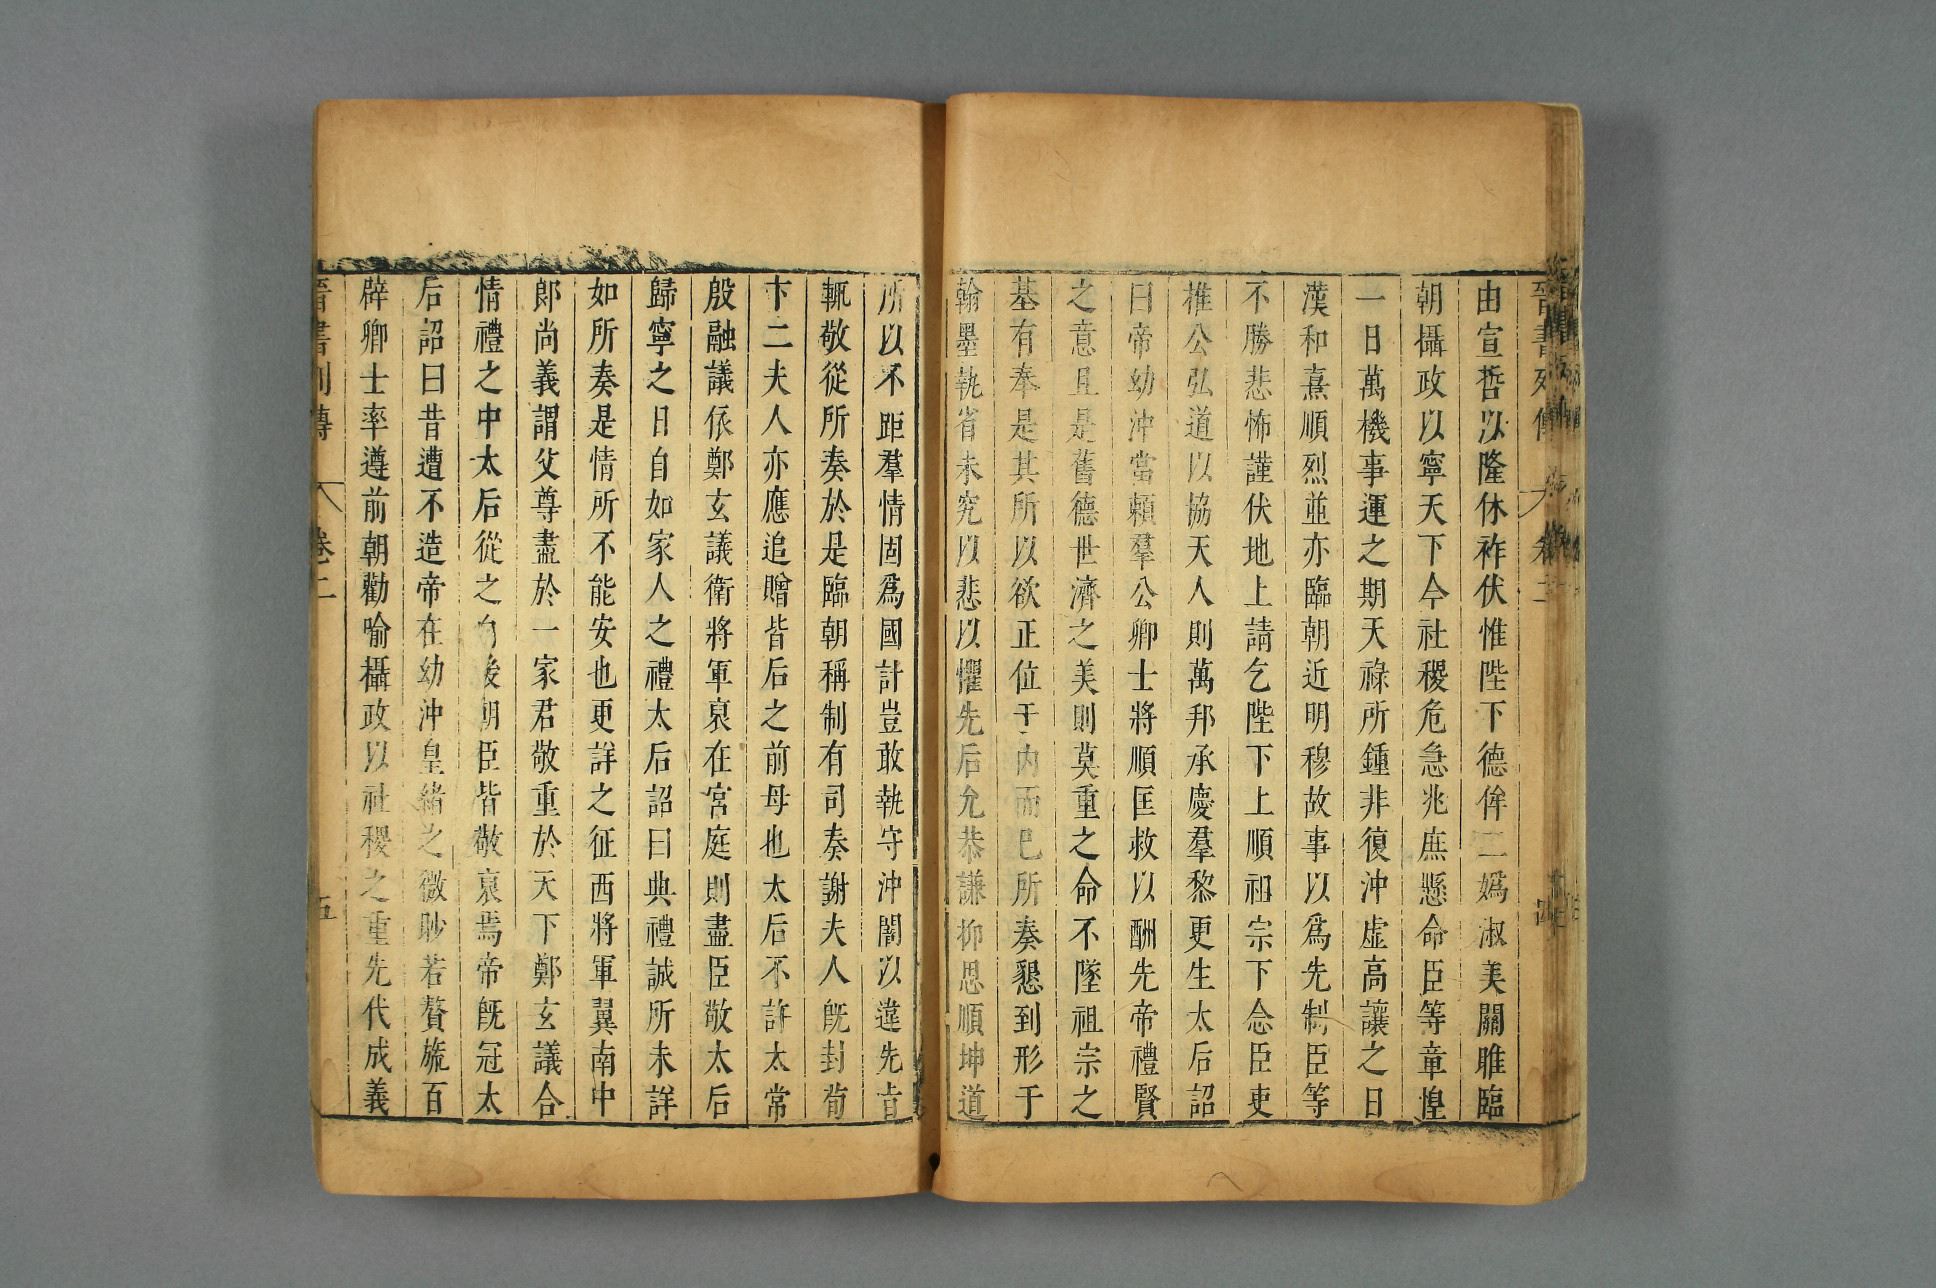 晉書列傳 卷二
由宣哲以隆休祚伏惟陛下德侔二嬀淑美關雎臨
朝攝政以寧天下今社稷危急兆庶懸命臣等章惶
一日萬機事運之期天祿所鍾非復沖虛高讓之日
漢和熹順烈並亦臨朝近明穆故事以爲先制臣等
不勝悲怖謹伏地上請乞陛下上順祖宗下念臣吏
推公弘道以協天人則萬邦承慶羣黎更生太后詔
曰帝幼沖當賴羣公卿士將順匡救以酬先帝禮賢
之意且是舊德世濟之美則莫重之命不墜祖宗之
基有奉是其所以欲正位于内而已所奏懇到形于
翰墨執省未究以悲以懼先后允恭謙抑思順坤道
所以不距羣情固爲國計豈敢執守沖闇以違先旨
輒敬從所奏於是臨朝稱制有司奏謝夫人旣封荀
卞二夫人亦應追贈皆后之前母也太后不許太常
殷融議依鄭玄議衛將軍裒在宮庭則盡臣敬太后
歸寧之日自如家人之禮太后詔曰典禮誠所未詳
如所奏是情所不能安也更詳之征西將軍翼南中
郞尚義謂父尊盡於一家君敬重於天下鄭玄議合
情禮之中太后從之自後朝臣皆敬裒焉帝旣冠太
后詔曰昔遭不造帝在幼沖皇緒之微眇若贅旒百
辟卿士率遵前朝勸喻攝政以社稷之重先代成義
晉書列傳 卷二 五